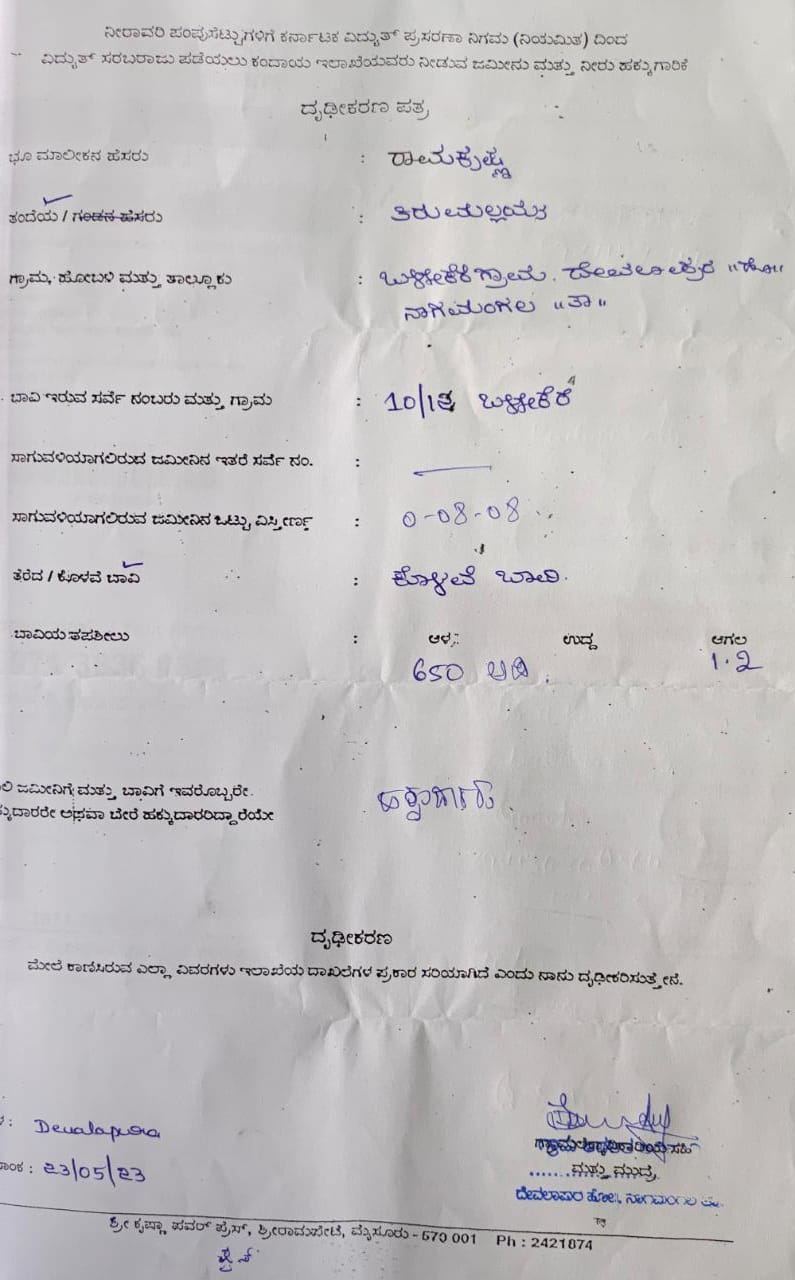 ನೀರಾವರಿ ಪಂಪುಸೆಟ್ಟುಗಳಿಗೆ ಕರ್ನಾಟಕ ವಿದ್ಯುತ್ ಪ್ರಸರಣಾ ನಿಗಮ (ನಿಯಮಿತ) ದಿಂದ
ವಿದ್ಯುತ್ ಸರಬರಾಜು ಪಡೆಯಲು ಕಂದಾಯ ಇಲಾಖೆಯವರು ನೀಡುವ ಜಮೀನು ಮತ್ತು ನೀರು ಹಕ್ಕುಗಾರಿಕೆ
ದೃಢೀಕರಣ ಪತ್ರ
ಭೂ ಮಾಲೀಕನ ಹೆಸರು : ರಾಮಕೃಷ್ಣ
ತಂದೆಯ / ಗಂಡನ ಹೆಸರು : ತಿರುಮಲ್ಲಯ್ಯ
ಗ್ರಾಮ, ಹೋಬಳಿ ಮತ್ತು ತಾಲ್ಲೂಕು : ಗ್ರಾಮ. "ಹೋ"
ನಾಗಮಂಗಲ "ತಾ"
ಬಾವಿ ಇರುವ ಸರ್ವೆ ನಂಬರು ಮತ್ತು ಗ್ರಾಮ :
ಸಾಗುವಳಿಯಾಗಲಿರುವ ಜಮೀನಿನ ಇತರೆ ಸರ್ವೆ ನಂ. : —
ಸಾಗುವಳಿಯಾಗಲಿರುವ ಜಮೀನಿನ ಒಟ್ಟು ವಿಸ್ತೀರ್ಣ : 0-08-08
ತೆರೆದ / ಕೊಳವೆ ಬಾವಿ : ಕೊಳವೆ ಬಾವಿ.
ಬಾವಿಯ ತಪಶೀಲು : ಆಳ ಉದ್ದ ಅಗಲ
650 ಅಡಿ. 1.2
ಜಮೀನಿಗೆ ಮತ್ತು ಬಾವಿಗೆ ಇವರೊಬ್ಬರೇ
ಅಥವಾ ಬೇರೆ ಹಕ್ಕುದಾರರಿದ್ದಾರೆಯೇ
ದೃಢೀಕರಣ
ಮೇಲೆ ಕಾಣಿಸಿರುವ ಎಲ್ಲಾ ವಿವರಗಳು ಇಲಾಖೆಯ ದಾಖಲೆಗಳ ಪ್ರಕಾರ ಸರಿಯಾಗಿದೆ ಎಂದು ನಾನು ದೃಢೀಕರಿಸುತ್ತೇನೆ.
: Devalapura
: 23/05/23
ಸಹಿ
ಮತ್ತು ಮುದ್ರೆ
ದೇವಲಾಪುರ ಹೋ, ನಾಗಮಂಗಲ ತಾ.
ಶ್ರೀ ಕೃಷ್ಣಾ ಪವರ್ ಪ್ರೆಸ್, ಶ್ರೀರಾಮಪೇಟೆ, ಮೈಸೂರು - 570 001 Ph : 2421874